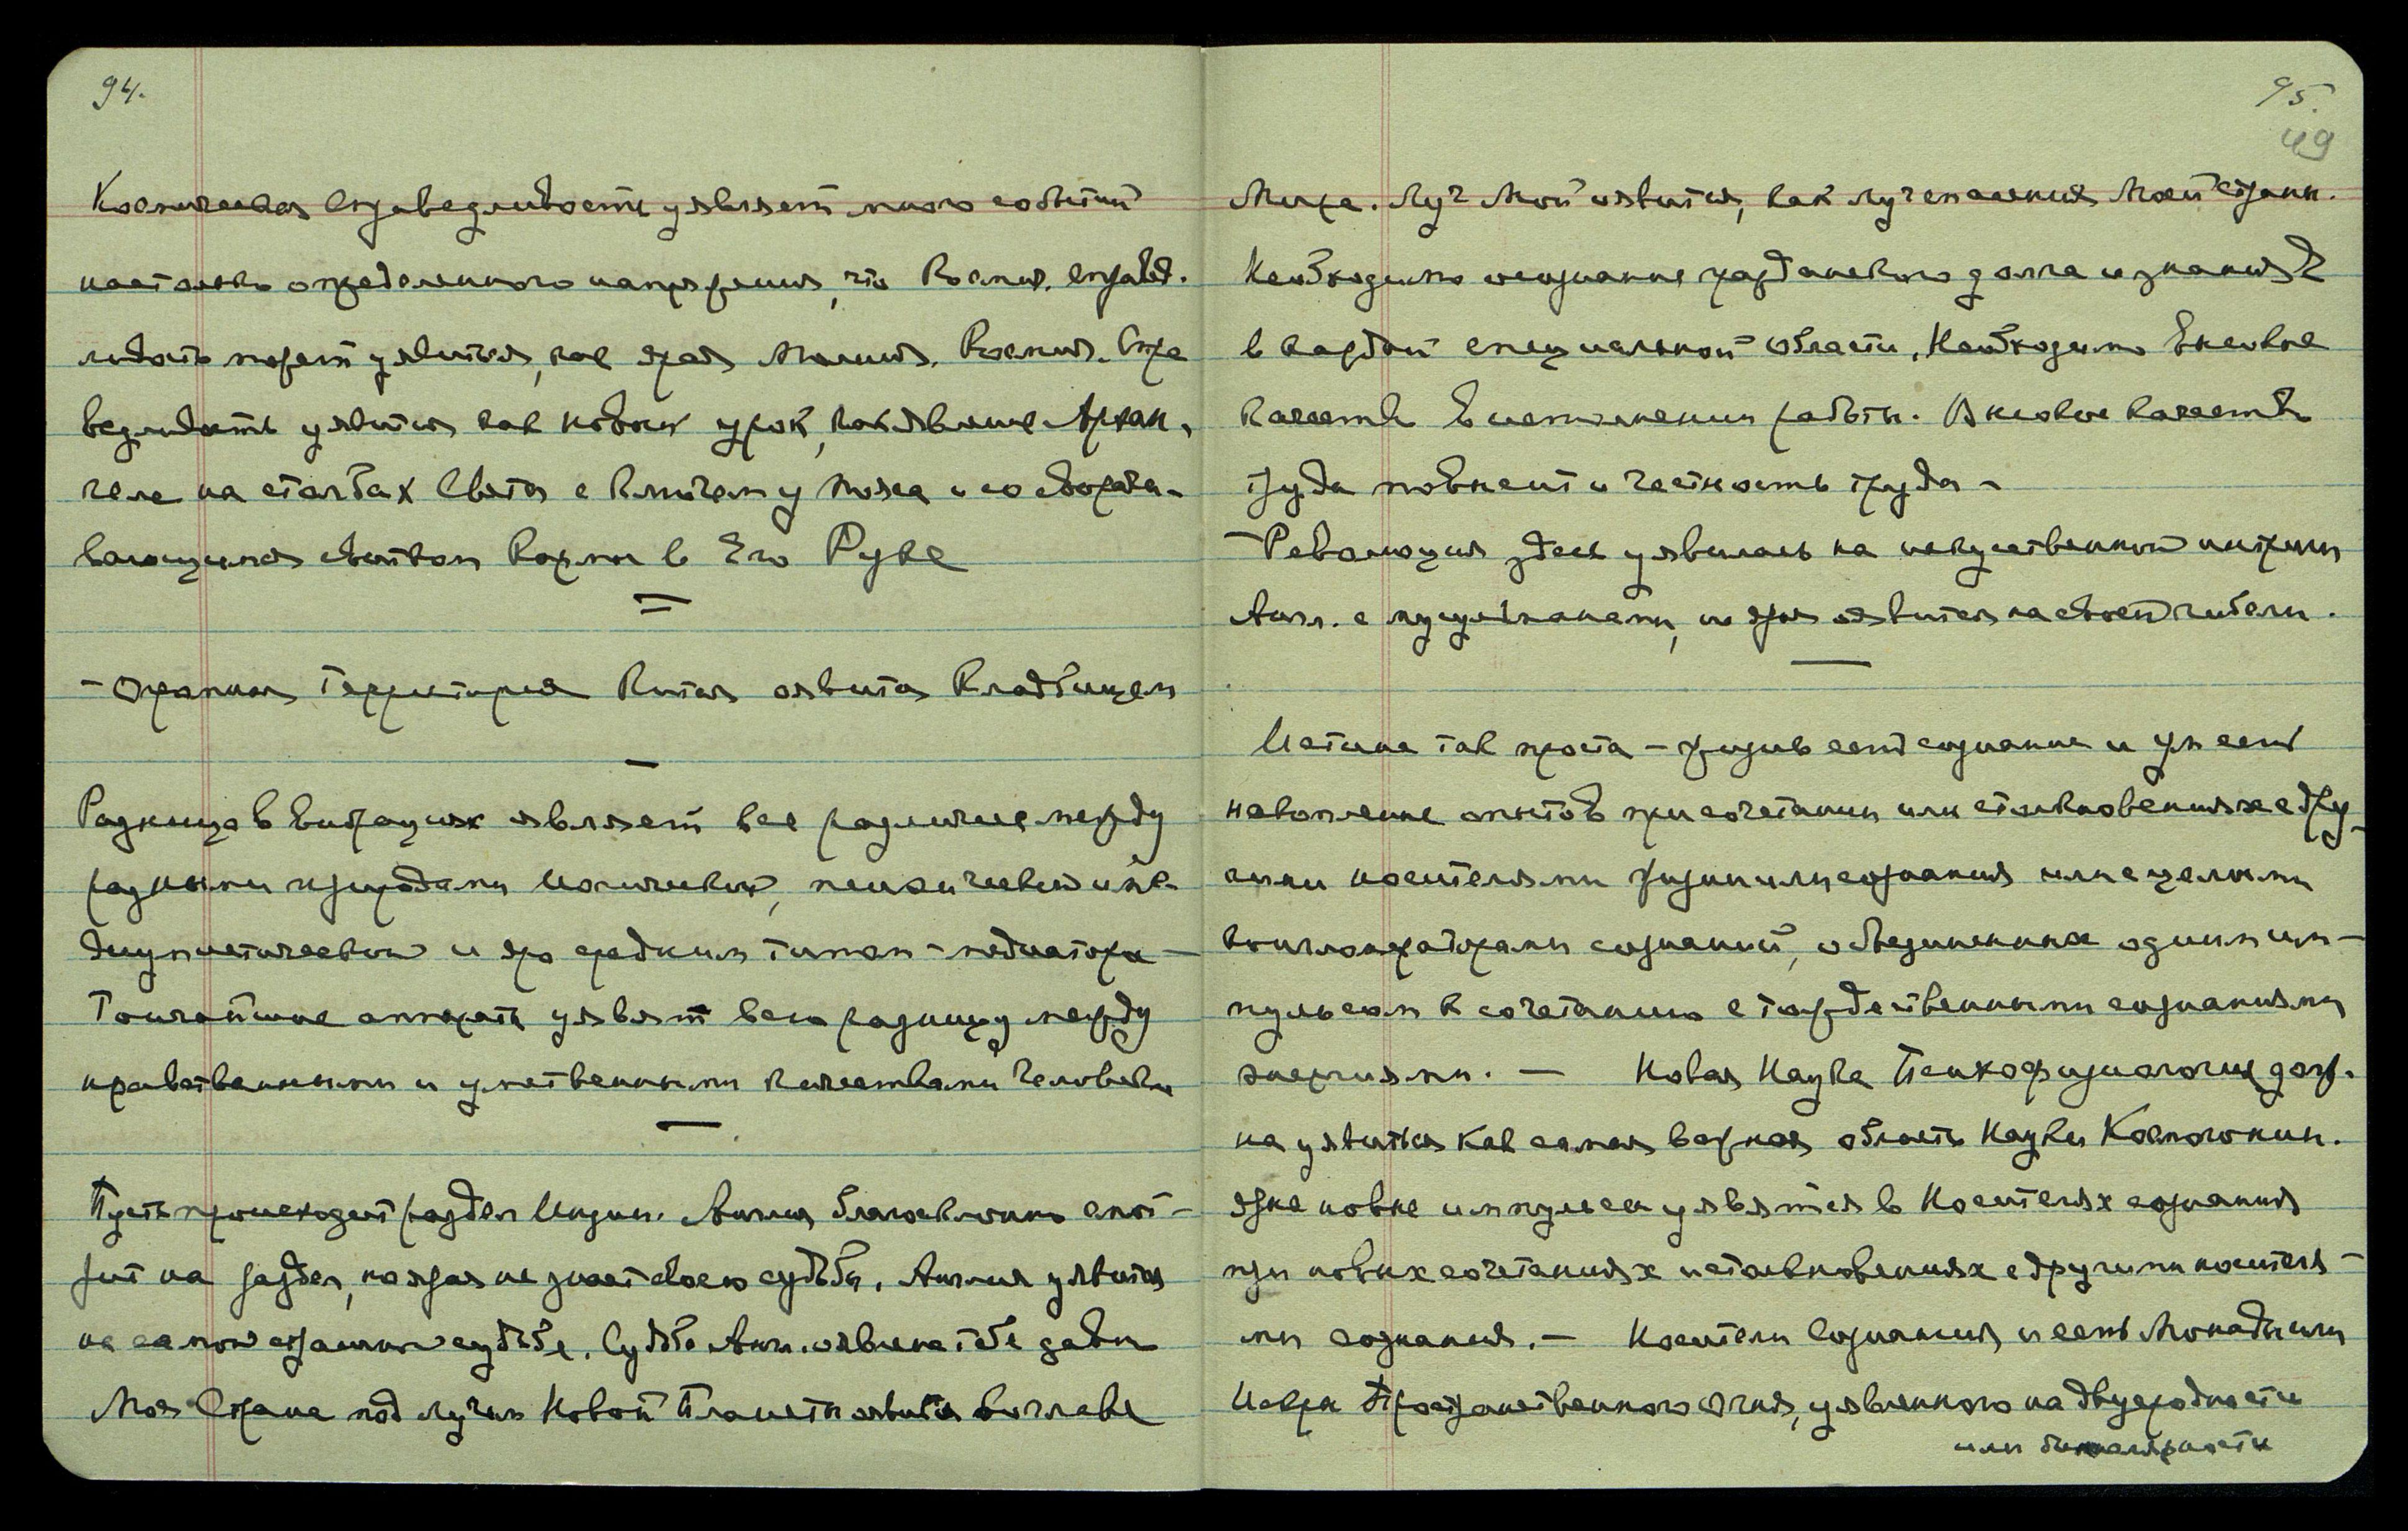 94.
Космическая Справедливость уявляет много событий
настолько определенного напряжения, что Космич. справед.
ливость может уявиться, как ярая Молния. Космич. Спра
ведливость уявится как новый урок, как явление Архан,
гела на столбах Света с Ключем у пояса и со сворачи-
вающимся свитком Кармы в Его Руке
- Огромная Территория Китая явится Кладбищем
Разница в вибрациях являет все различие между
разными природами психической, и
медиумистической и яро средним типом - медиатора -
Тончайшие аппараты уявят всю разницу между
нравственными и умственными качествами человека
Пусть происходит раздел Индии. Англия благосклонно смот-
рит на раздел, но ярая не знает своей судьбы. Англия уявится
на самой страшной судьбе. Судьба Англ. явлена тебе давно
Моя Страна под лучом Новой Планеты явится во главе
95.
49
Мира. Луч Мой явится, как луч спасения Моей страны.
Необходимо осознание гражданского долга и знания
в каждой специальной области. Необходимо высокое
качество в исполнении работы. Высокое качество
труда повысит и честность труда -
- Революция здесь уявилась на искусственной интриги
Англ. с мусульманами, но ярая явится на своей гибели.
Истина так проста - жизнь есть сознание и ум есть
накопление опытов при сочетании или столкновениях с дру-
гими носителями жизни или сознания или с целыми
конгломератами сознаний, объединенных одним им-
пульсом к сочетанию с тождественными сознаниями
энергиями. — Новая Наука Психофизиология долж.
на уявиться как самая важная область Науки Космогонии.
Ярые новые импульсы уявятся в Носителях сознания
при новых сочетаниях и столкновениях с другими носителя-
ми сознания. — Носители Сознания и есть Монады или
Искры Пространственного Огня, уявленного на двуродности
или биполярности